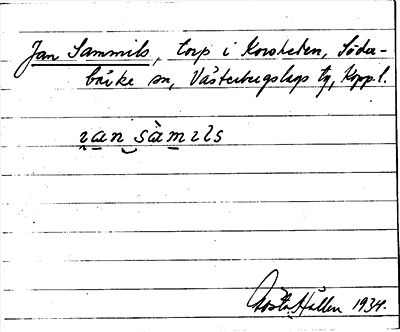 Jan Sammils, torp i Korsheden, Söder-
bärke sn, Västerbergslags tg, Kopp. l.
ɿan sàmɪls
Gösta Hallen 1934.